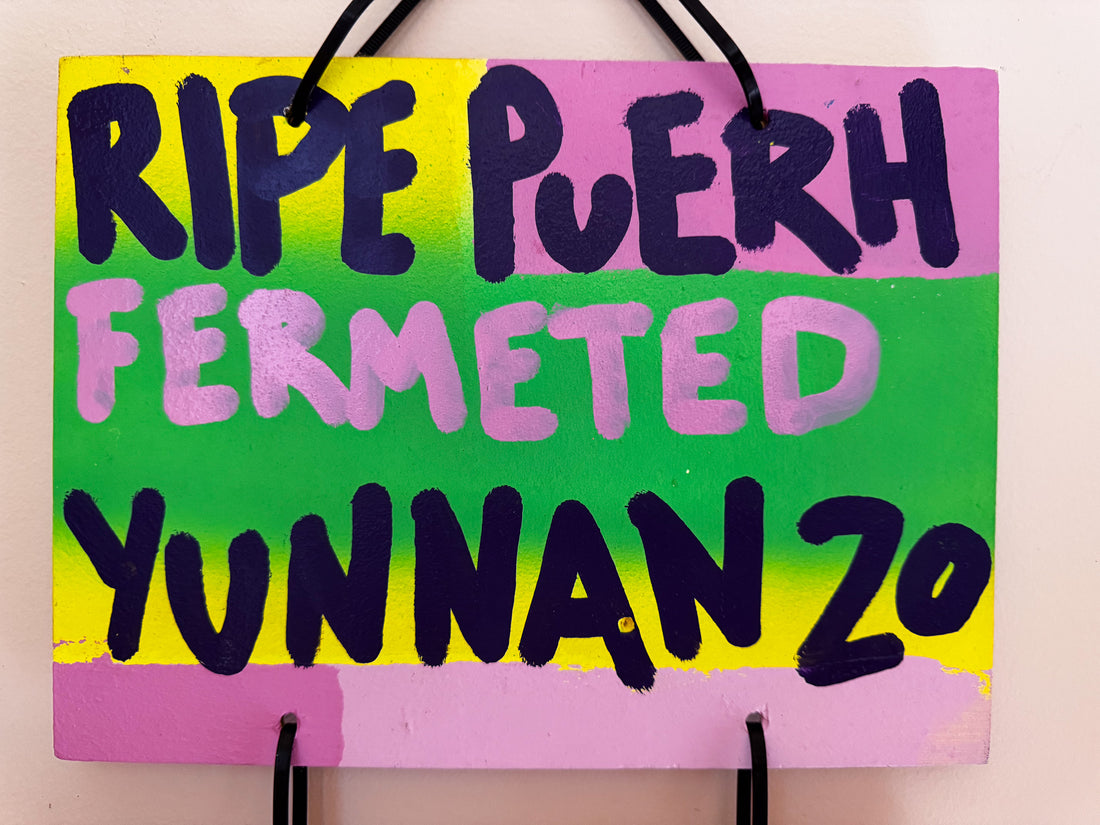 RIPE PuERH
FERMETED
YUNNAN 20